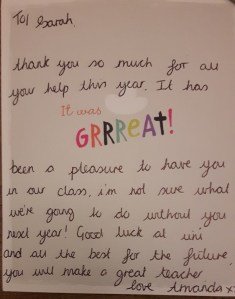 TO/ Sarah.
thank you so much for all
you help this year. It has
It was
GRRREAT!
been a pleasure to have you
in our class. i'm not sure what
we're going to do without you
next year! Good luck at uni
and all the best for the future,
you will make a great teacher
love Amanda x